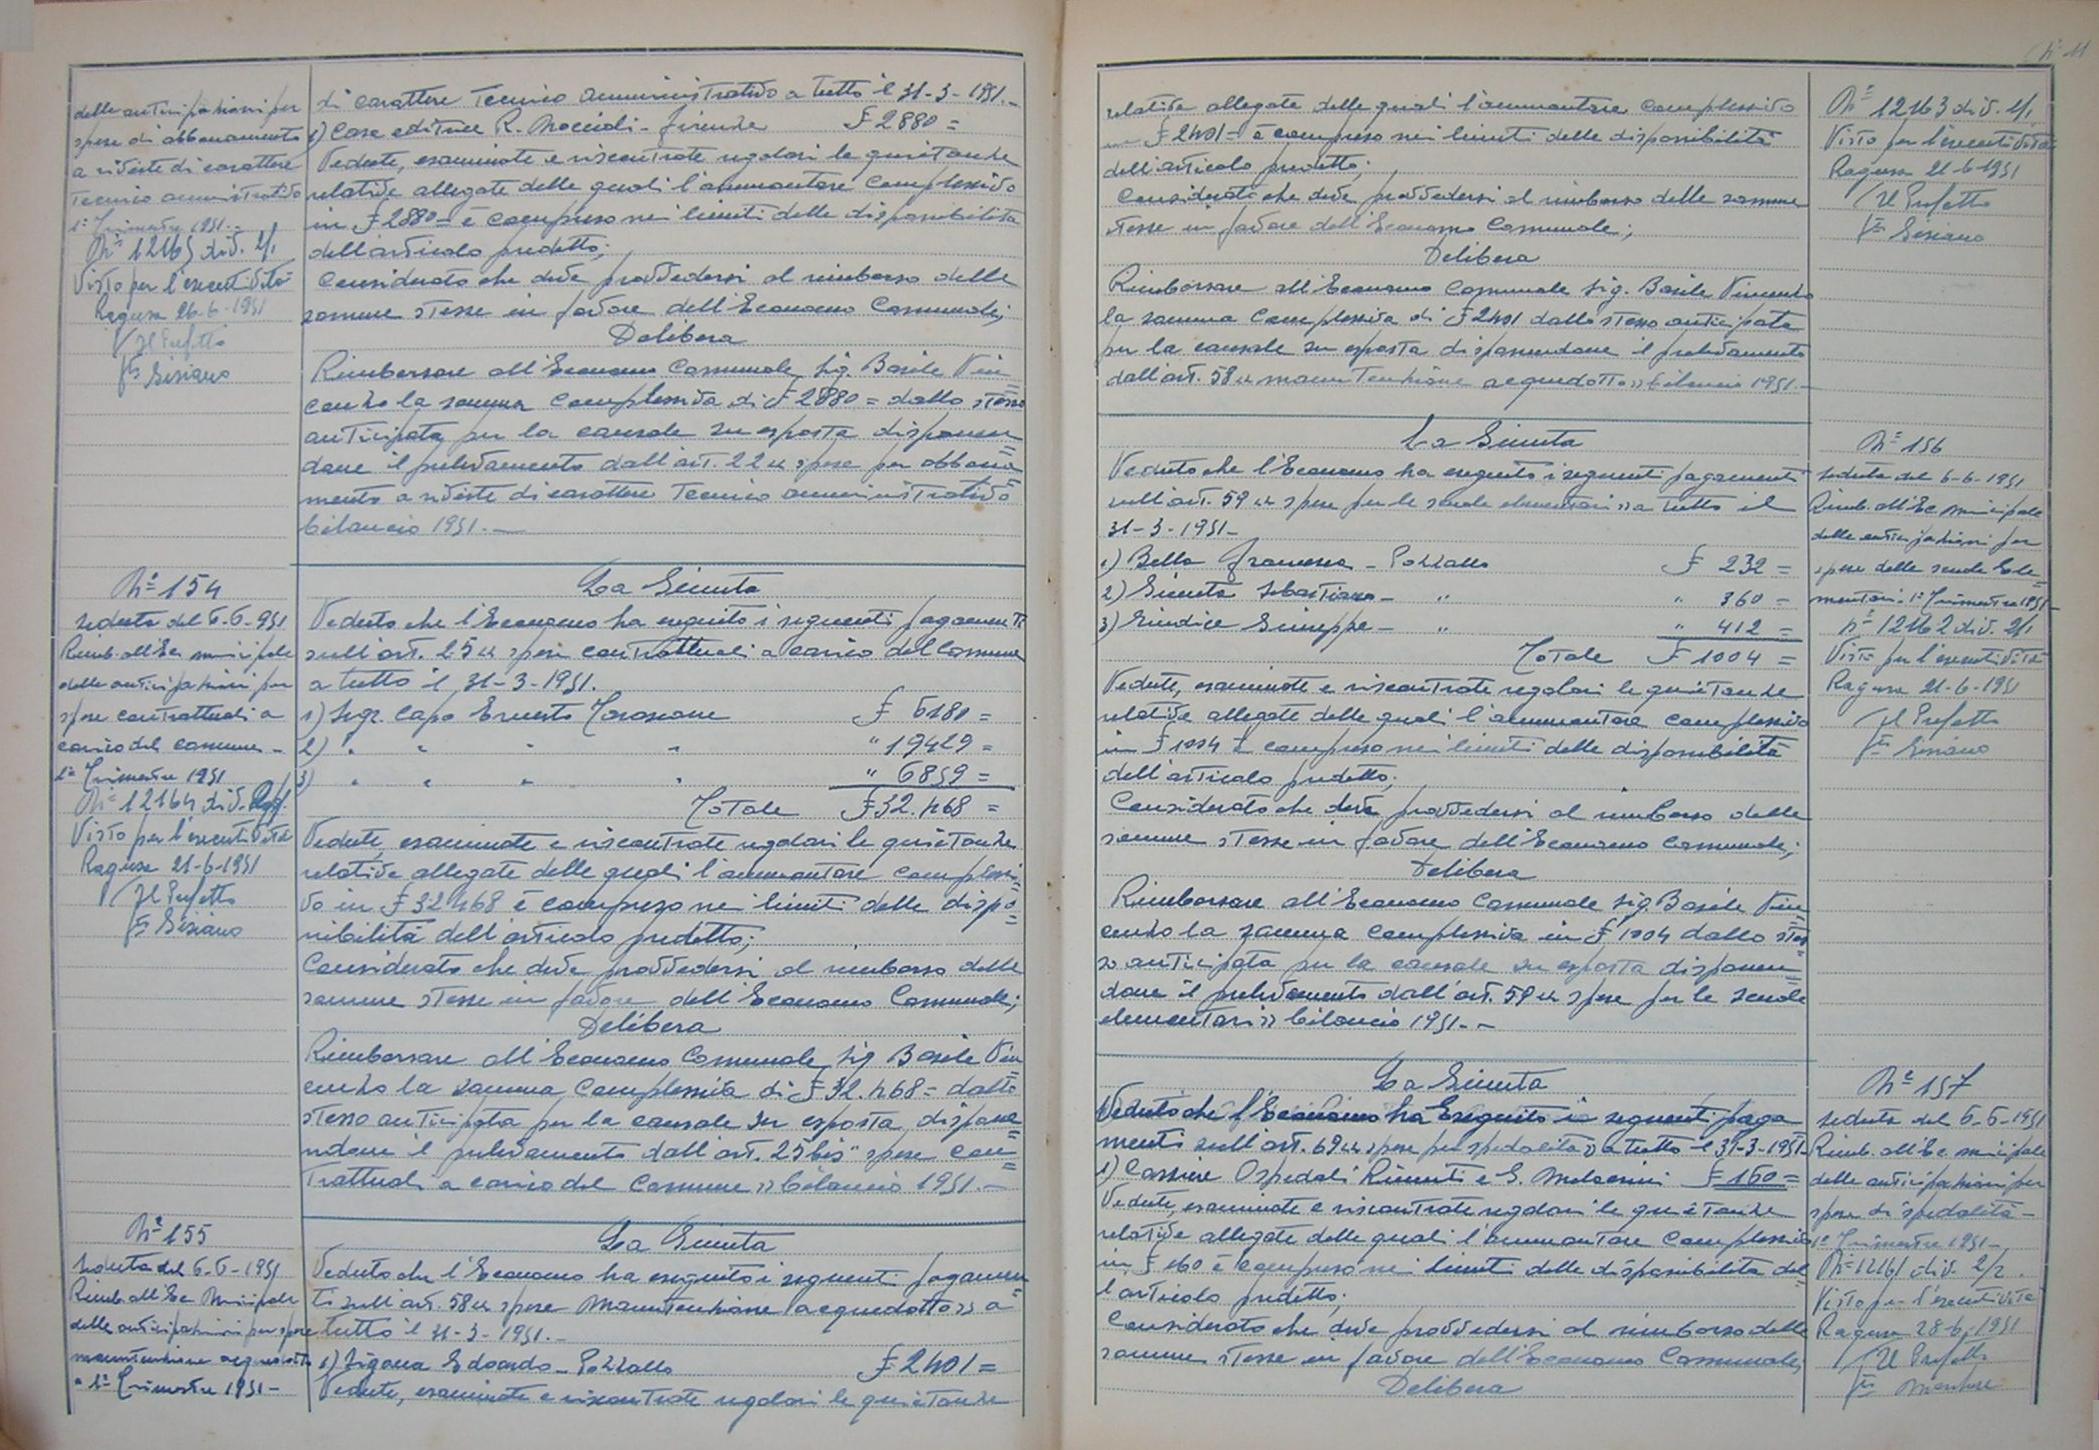 delle anticipazioni per
spese di abbonamento
a riviste di carattere
Tecnico amministrativo
1° Trimestre 1951.-
N° 12165 div. 2/1
Visto per l'esecutività
Ragusa 26-6-1951
Il Prefetto
di carattere Tecnico amministrativo a tutto il 31-3-1951.-
1) Casa editrice R. Noccioli - Firenze £ 2880 =
Vedute, esaminate e riscontrate regolari le quietanze
relative allegate delle quali l'ammontare complessivo
in £ 2880 = è compreso nei limiti delle disponibilità
dell'articolo predetto;
Considerato che deve provvedersi al rimborso delle
somme stesse in favore dell'Economo Comunale;
Delibera
Rimborsare all'Economo Comunale Sig. Basile Vin=
cenzo la somma complessiva di £ 2880 = dallo stesso
anticipata per la causale su esposta disponen=
done il prelevamento dall'art. 22 "spese per abbona=
mento a riviste di carattere Tecnico amministrativo
bilancio 1951.-
N° 154
Seduta del 6-6-951
Rimb. all'Ec. municipale
delle anticipazioni per
spese contrattuali a
carico del comune -
1° Trimestre 1951
N° 12164 div.
Visto per l'esecutività
Ragusa 21-6-1951
Il Prefetto
La Giunta
Veduto che l'Economo ha eseguito i seguenti pagamenti
sull'art. 25 "spese contrattuali a carico del Comune
a tutto il 31-3-1951.
1) Segr. Capo Ernesto £ 6180 =
2) " " " " " 19429 =
3) " " " " " 6859 =
Totale £ 32.468 =
Vedute, esaminate e riscontrate regolari le quietanze
relative allegate delle quali l'ammontare complessi=
vo in £ 32468 è compreso nei limiti delle dispo=
nibilità dell'articolo predetto;
Considerato che deve provvedersi al rimborso delle
somme stesse in favore dell'Economo Comunale;
Delibera
Rimborsare all'Economo Comunale Sig. Basile Vin=
cenzo la somma complessiva di £ 32.468 = dallo
stesso anticipata per la causale su esposta, dispone=
ndone il prelevamento dall'art. 25 bis "spese con=
trattuali a carico del Comune" bilancio 1951.-
N° 155
Seduta del 6-6-1951
Rimb. all'Ec. Municipale
delle anticipazioni per spese
manutenzione acquedotto
- 1° Trimestre 1951 -
La Giunta
Veduto che l'Economo ha eseguito i seguenti pagamen=
ti sull'art. 58 "spese manutenzione acquedotto" a
tutto il 31-3-1951.-
1) Edoardo - Pozzallo £ 2401 =
Vedute, esaminate e riscontrate regolari le quietanze
N° 11
relative allegate delle quali l'ammontare complessivo
in £ 2401 = è compreso nei limiti delle disponibilità
dell'articolo predetto;
Considerato che deve provvedersi al rimborso delle somme
stesse in favore dell'Economo Comunale;
Delibera
Rimborsare all'Economo Comunale Sig. Basile Vincenzo
la somma complessiva di £ 2401 dallo stesso anticipata
per la causale su esposta disponendone il prelevamento
dall'art. 58 "manutenzione acquedotto" bilancio 1951.-
N° 12163 div. 2/1
Visto per l'esecutività
Ragusa 21-6-1951
Il Prefetto
La Giunta
Veduto che l'Economo ha eseguito i seguenti pagamenti
sull'art. 59 "spese per le scuole elementari" a tutto il
31-3-1951-
1) Bella Francesca - Pozzallo £ 232 =
2) Giunta Sebastiano - " " 360 =
3) Giudice Giuseppe - " " 412 =
Totale £ 1004 =
Vedute, esaminate e riscontrate regolari le quietanze
relative allegate delle quali l'ammontare complessivo
in £ 1004 è compreso nei limiti delle disponibilità
dell'articolo predetto;
Considerato che deve provvedersi al rimborso delle
somme stesse in favore dell'Economo Comunale;
Delibera
Rimborsare all'Economo Comunale Sig. Basile Vin=
cenzo la somma complessiva in £ 1004 dallo stes=
so anticipata per la causale su esposta disponen=
done il prelevamento dall'art. 59 "spese per le scuole
elementari" bilancio 1951.-
N° 156
Seduta del 6-6-1951
Rimb. all'Ec. municipale
delle anticipazioni per
spese delle scuole Ele=
mentari. 1° Trimestre 1951-
N° 12162 div. 2/1
Visto per l'esecutività
Ragusa 21-6-1951
Il Prefetto
La Giunta
Veduto che l'Economo ha Eseguito i seguenti paga
menti sull'art. 69 "spese per spedalità" a tutto il 31-3-1951-
1) Ospedali Riuniti e S. £ 160 =
Vedute, esaminate e riscontrate regolari le quietanze
relative allegate delle quali l'ammontare complessivo
in £ 160 è compreso nei limiti delle disponibilità del=
l'articolo predetto;
Considerato che deve provvedersi al rimborso delle
somme stesse in favore dell'Economo Comunale;
Delibera
N° 157
Seduta del 6-6-1951
Rimb. all'Ec. municipale
delle anticipazioni per
spese di spedalità -
1° Trimestre 1951-
N° 12161 div. 2/2.
Visto per l'esecutività
Ragusa 28-6-1951
Il Prefetto